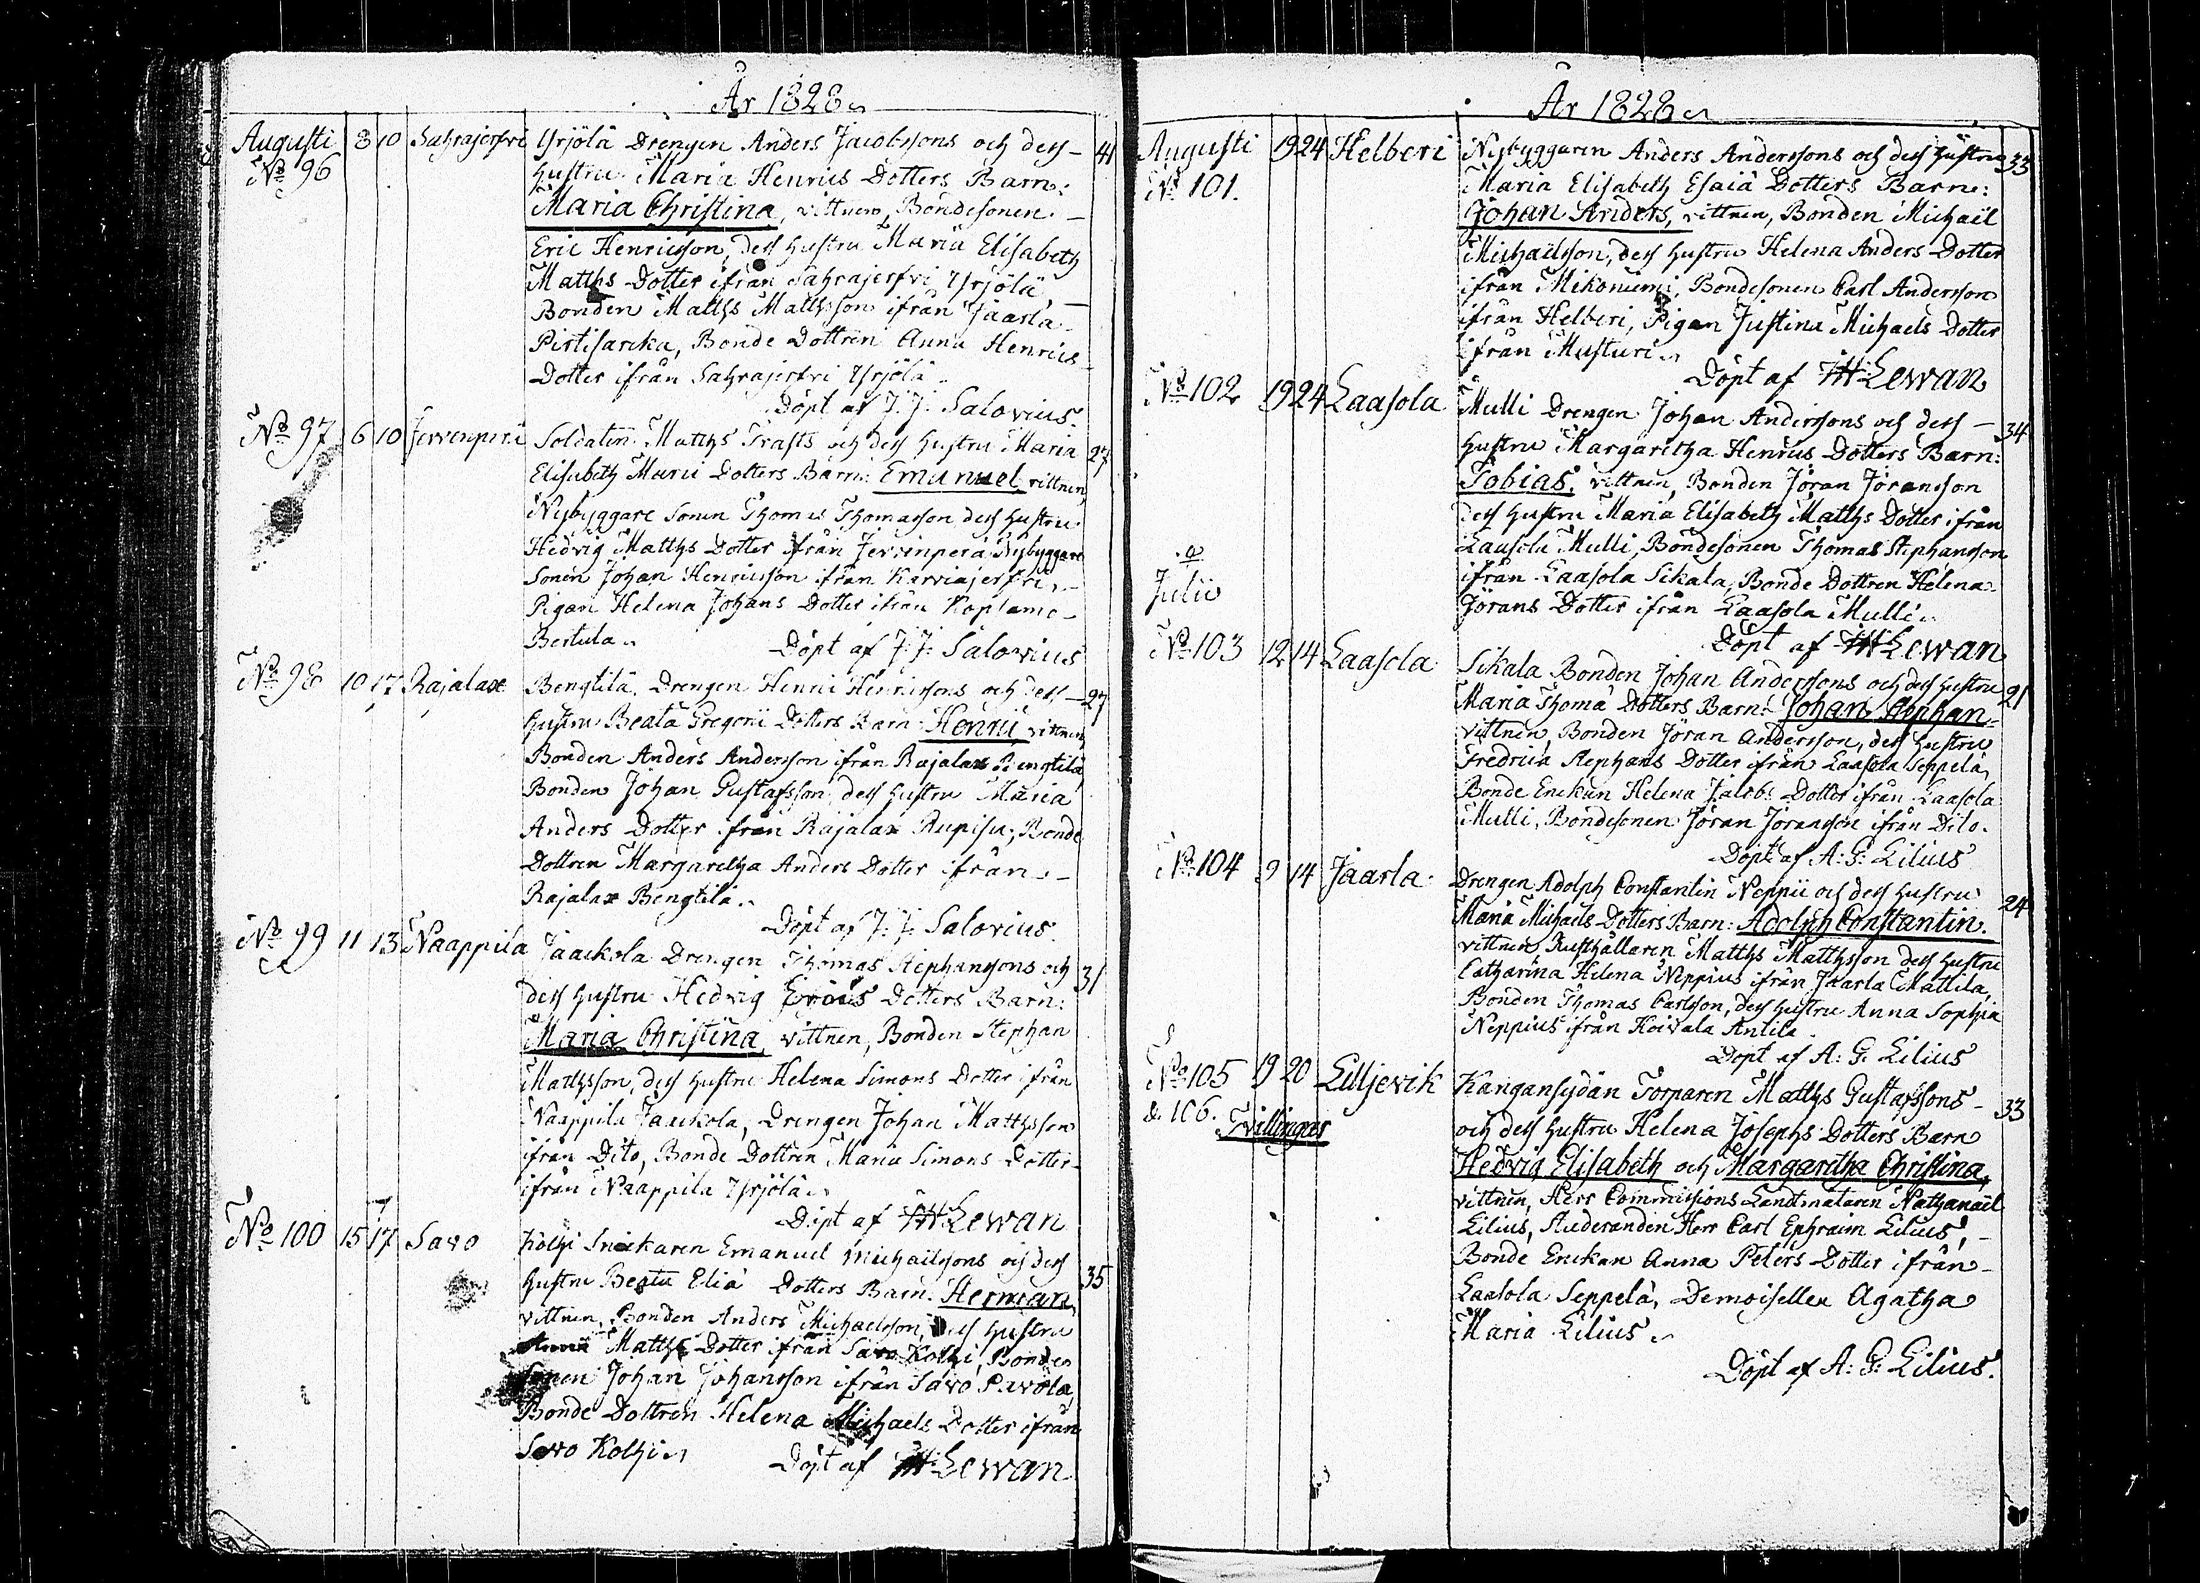 År 1828
Augusti 8 10 Sahrajerfvi Yrjölä Drengen Anders Jacobssons och dess 41
No 96 hustru Maria Henrics Dotters Barn:
Maria Christina, vittnen, Bondesonen
Eric Henricsson, dess hustru Maria Elisabeth
Matths Dotter ifrån Sahrajerfvi Yrjölä,
Bonden Matths Mattsson ifrån Jaarla
Pirtisarka, Bonde Dottren Anna Henrics
Dotter ifrån Sahrajerfvi Yrjölä
Döpt af J: J: Salovius.
No 97 6 10 Jervenperä Soldaten Matths Trasts och dess hustru Maria 27
Elisabeth Marci Dotters Barn: Emanuel vittnen,
Nybyggare Sonen Thomas Thomasson dess hustru
Hedvig Matths Dotter ifrån Jervenperä Nybyggare
Sonen Johan Henricsson ifrån Karviajerfvi,
Pigan Helena Johans Dotter ifrån
Bertula. Döpt af J: J: Salovius
No 98 10 17 Rajalax Bengtilä Drengen Henric Henricssons och dess 27
hustru Beata Gregorii Dotters Barn: Henric vittnen,
Bonden Anders Andersson ifrån Rajalax Bengtilä,
Bonden Johan Gustafsson, dess hustru Maria
Anders Dotter ifrån Rajalax Rupisu, Bonde
Dottren Margaretha Anders Dotter ifrån
Rajalax Bengtilä.
Döpt af J: J: Salovius
No 99 11 13 Naappila Jaackola Drengen Thomas Stephanssons och 31
dess hustru Hedvig Erics Dotters Barn:
Maria Christina, vittnen, Bonden Stephan
Matthsson, dess hustru Helena Simons Dotter ifrån
Naappila Jaackola, Drengen Johan Matthsson
ifrån Dito, Bonde Dottren Maria Simons Dotter
ifrån Naappila Yrjölä
Döpt af Lewan
No 100 15 17 Savo Kolhi Snickaren Emanuel Michaelssons och dess 35
hustru Beata Eliä Dotters Barn: Herman,
vittnen, Bonden Anders Michaelsson, dess hustru
Anna Matths Dotter ifrån Savo Kolhi, Bonde
sonen Johan Johansson ifrån Savo Pavola,
Bonde Dottren Helena Michaels Dotter ifrån
Savo Kolhi
Döpt af Lewan
År 1828
Augusti 19 24 Helberi Nybyggaren Anders Anderssons och dess hustru 33
No 101. Maria Elisabeth Esaiä Dotters Barn:
Johan Anders, vittnen, Bonden Michaël
Michaëlsson, dess hustru Helena Anders Dotter
ifrån Mikonumi, Bondesonen Carl Andersson
ifrån Helberi, Pigan Justina Michaels Dotter
ifrån Musturi
Döpt af Lewan
No 102 19 24 Laasola Mulli Drengen Johan Anderssons och dess 34
hustru Margaretha Henrics Dotters Barn:
Tobias, vittnen, Bonden Jöran Jöransson
dess hustru Maria Elisabeth Matths Dotter ifrån
Laasola Mulli, Bondesonen Thomas Stephansson
ifrån Laasola Sikala, Bonde Dottren Helena
Jörans Dotter ifrån Laasola Mulli
Döpt af Lewan
Julii
No 103 12 14 Laasola Sikala Bonden Johan Anderssons och dess hustru 21
Maria Thomä Dotters Barn: Johan Stephan
vittnen, Bonden Jöran Andersson, dess hustru
Fredrica Stephans Dotter ifrån Laasola Seppelä,
Bonde Enckan Helena Jacobs Dotter ifrån Laasola
Mulli, Bondesonen Jöran Jöransson ifrån Dito.
Döpt af A: G: Lilius
No 104 9 14 Jaarla Drengen Adolph Constantin Neppii och dess hustru 24
Maria Michaels Dotters Barn: Adolph Constantin.
vittnen, Rusthållaren Matths Matthsson dess hustru
Catharina Helena Neppius ifrån Jaarla Mattila,
Bonden Thomas Carlsson, dess hustru Anna Sophia
Neppius ifrån Koivala Antila
Döpt af A: G: Lilius
No 105 19 20 Lilljevik Kangansydän Torparen Matths Gustafssons 33
& 106. Tvillingar och dess hustru Helena Josephs Dotters Barn
Hedvig Elisabeth och Margaretha Christina,
vittnen, Herr Commissions Landtmätaren Nathanaël
Lilius, Studeranden Herr Carl Ephraim Lilius,
Bonde Enckan Anna Peters Dotter ifrån
Laasola Seppelä, Demoisellen Agatha
Maria Lilius
Döpt af A: G: Lilius.